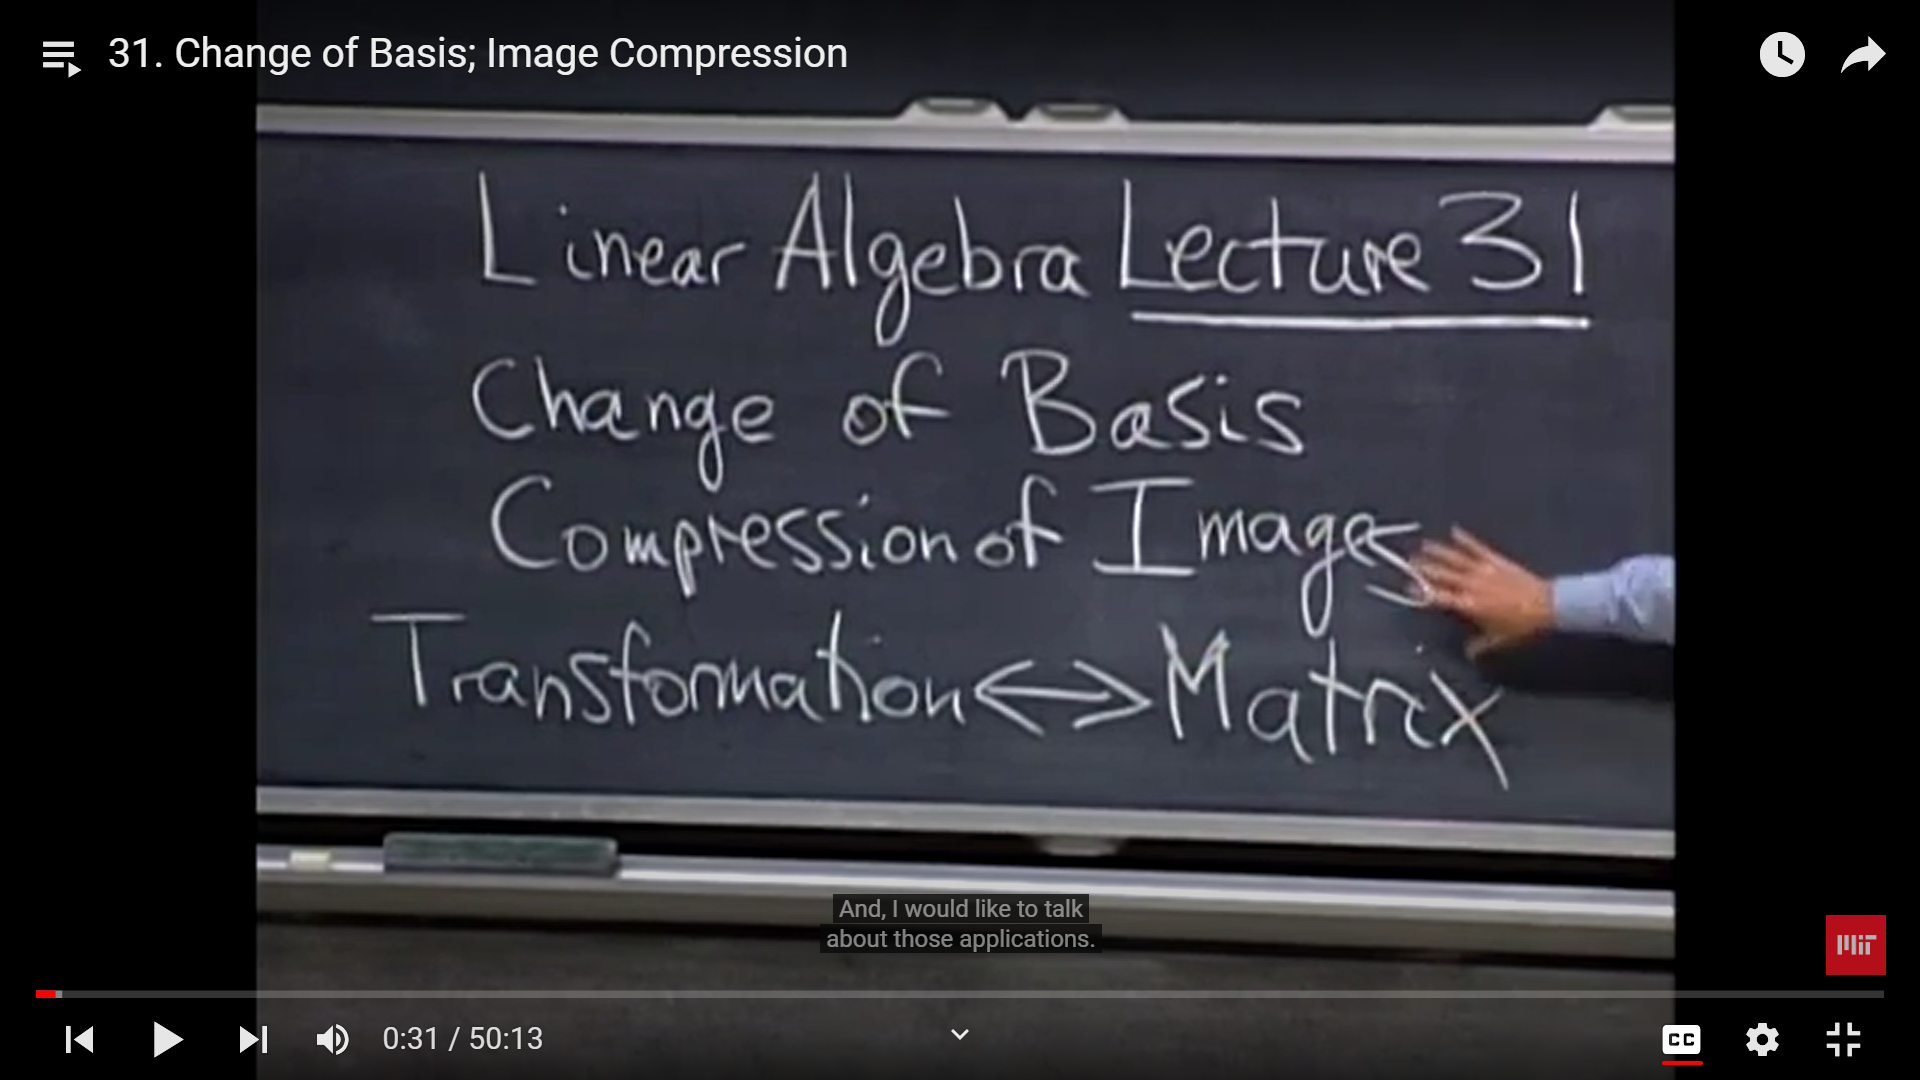 31. Change of Basis; Image Compression
Linear Algebra Lecture 31
Change of Basis
Compression of Images
Transformation ↔ Matrix
And, I would like to talk
about those applications.
MIT
0:31 / 50:13
CC